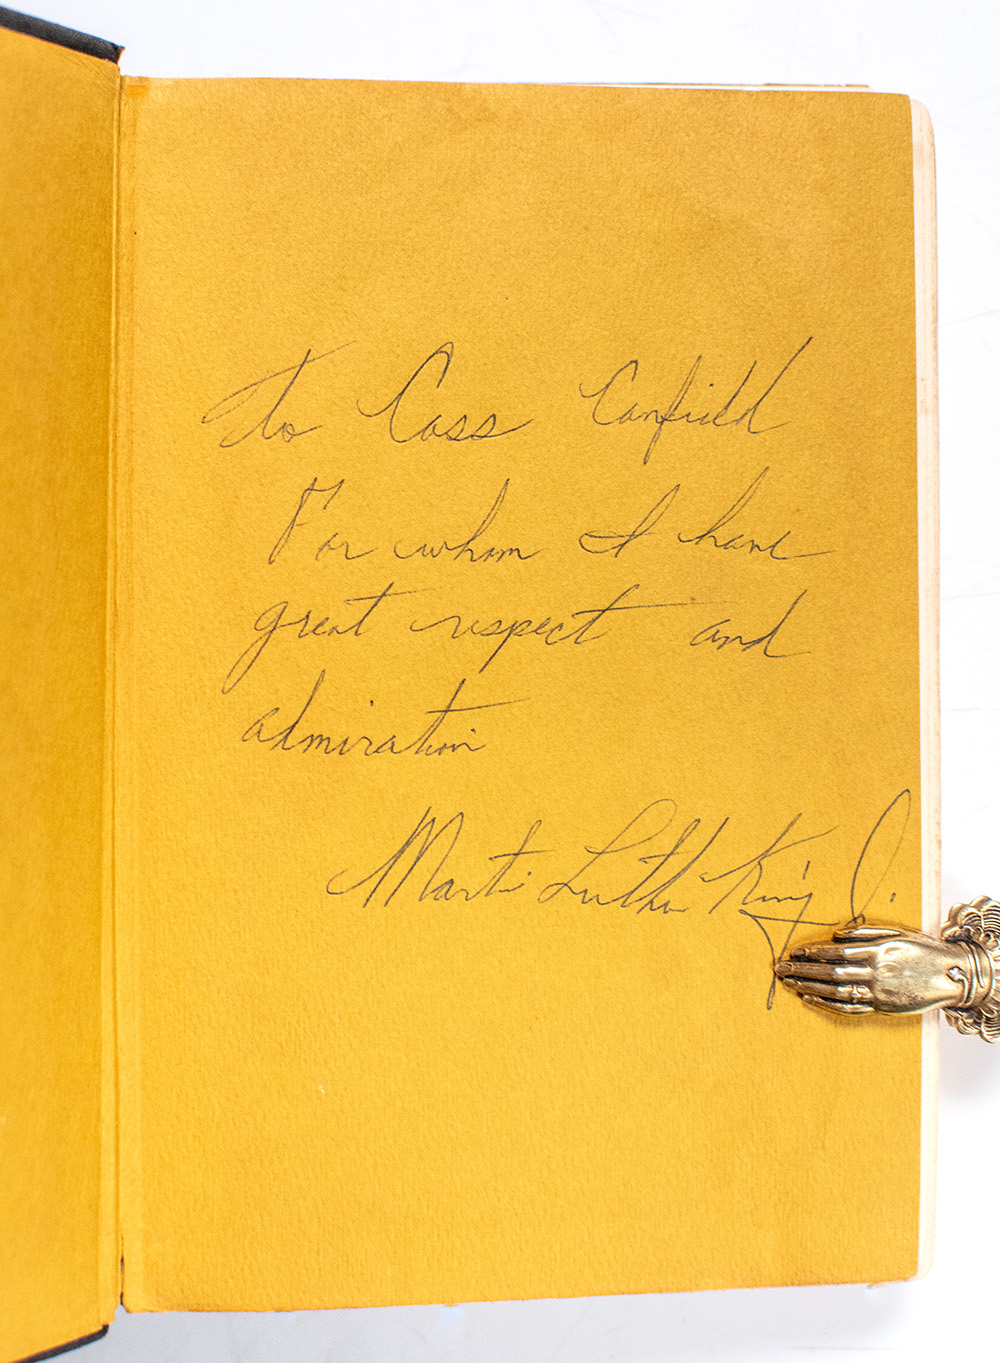 To Cass Canfield
For whom I have
great respect and
admiration
Martin Luther King Jr.